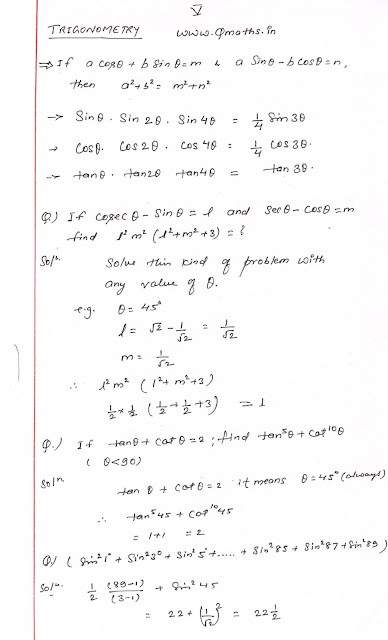 V
TRIGONOMETRY www.Qmaths.in
⇒ If a cosθ + b sinθ = m & a Sinθ - b cosθ = n,
then a²+b² = m²+n²
→ Sinθ · Sin 2θ · Sin 4θ = 1/4 Sin 3θ
→ Cosθ. Cos 2θ . Cos 4θ = 1/4 Cos 3θ.
→ tanθ · tan2θ tan4θ = tan 3θ.
Q.) If cosecθ - Sinθ = l and Secθ - Cosθ = m
find l² m² (l²+m²+3) = ?
Solⁿ. Solve this kind of problem with
any value of θ.
e.g. θ = 45°
l = √2 - 1/√2 = 1/√2
m = 1/√2
∴ l² m² (l² + m²+3)
1/2 × 1/2 (1/2 + 1/2 + 3) = 1
Q.) If tanθ + cotθ = 2 ; find tan⁵θ + Cot¹⁰θ
( θ<90)
Solⁿ. tan θ + Cotθ = 2 it means θ = 45° (always)
∴ tan⁵45 + Cot¹⁰45
= 1+1 = 2
Q.) ( Sin²1° + Sin²3° + Sin²5° + ..... + Sin²85 + Sin²87 + Sin²89 )
Solⁿ. 1/2 (89-1)/(3-1) + Sin²45
= 22 + (1/√2)² = 22 1/2